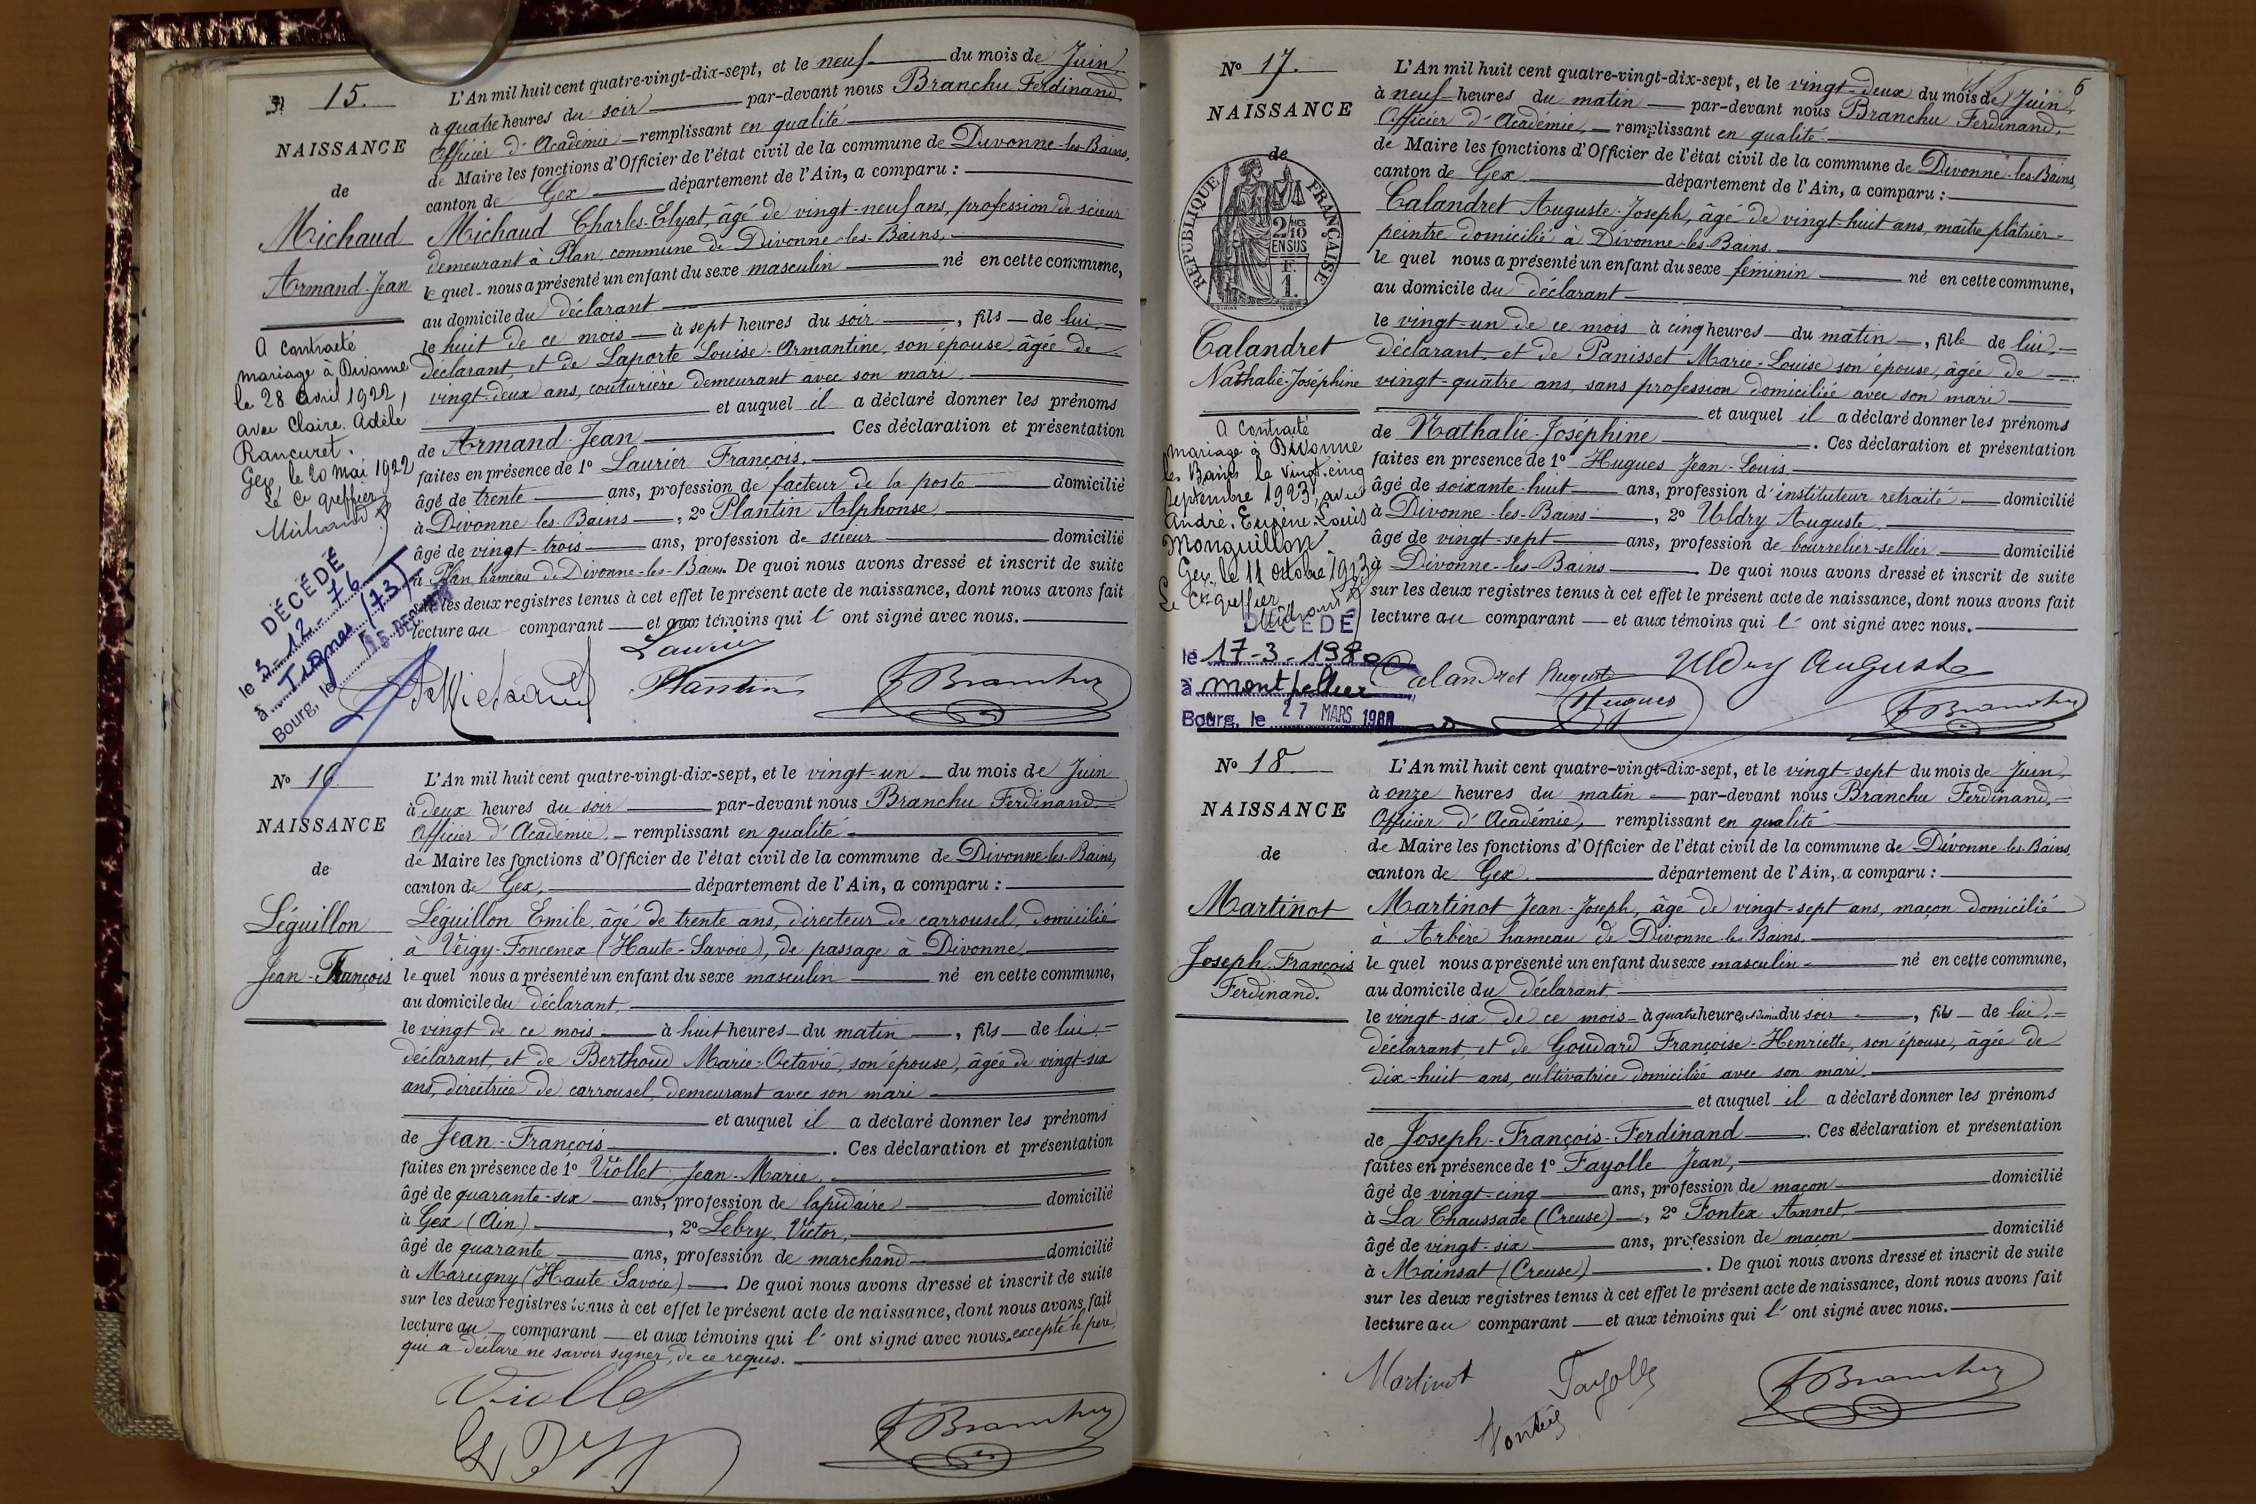 15.
NAISSANCE
de
Michaud
Armand-Jean
A contracté
mariage à Divonne
le 28 avril 1922,
avec Claire Adèle
Rancuret.
Gex, le 20 mai 1922
Le Cis greffier
DÉCÉDÉ
le 3-12-76
à Tignes (73)
Bourg, le 15 DEC
L'An mil huit cent quatre-vingt-dix-sept, et le neuf du mois de Juin,
à quatre heures du soir par-devant nous Branchu Ferdinand
Officier d'Académie remplissant en qualité
de Maire les fonctions d'Officier de l'état civil de la commune de Divonne-les-Bains,
canton de Gex département de l'Ain, a comparu :
Michaud Charles-Elyat, âgé de vingt-neuf ans, profession de scieur
demeurant à Plan, commune de Divonne-les-Bains,
le quel nous a présenté un enfant du sexe masculin né en cette commune,
au domicile du déclarant
le huit de ce mois à sept heures du soir, fils de lui,
déclarant, et de Laporte Louise-Armantine, son épouse, âgée de
vingt-deux ans, couturière demeurant avec son mari.
et auquel il a déclaré donner les prénoms
de Armand-Jean. Ces déclaration et présentation
faites en présence de 1º Laurier François,
âgé de trente ans, profession de facteur de la poste domicilié
à Divonne-les-Bains, 2º Plantin Alphonse
âgé de vingt-trois ans, profession de scieur domicilié
à Plan, hameau de Divonne-les-Bains. De quoi nous avons dressé et inscrit de suite
les deux registres tenus à cet effet le présent acte de naissance, dont nous avons fait
lecture au comparant et aux témoins qui l'ont signé avec nous.
Laurier
Michaud
Plantin
F Branchu
Nº 16.
NAISSANCE
de
Léguillon
Jean-François
L'An mil huit cent quatre-vingt-dix-sept, et le vingt-un du mois de Juin
à deux heures du soir par-devant nous Branchu Ferdinand
Officier d'Académie, remplissant en qualité
de Maire les fonctions d'Officier de l'état civil de la commune de Divonne-les-Bains,
canton de Gex, département de l'Ain, a comparu :
Léguillon Emile, âgé de trente ans, directeur de carrousel, domicilié
à Veigy-Foncenex (Haute-Savoie), de passage à Divonne,
le quel nous a présenté un enfant du sexe masculin né en cette commune,
au domicile du déclarant,
le vingt de ce mois à huit heures du matin, fils de lui,
déclarant, et de Berthoud Marie-Octavie, son épouse, âgée de vingt-six
ans, directrice de carrousel, demeurant avec son mari
et auquel il a déclaré donner les prénoms
de Jean-François. Ces déclaration et présentation
faites en présence de 1º Viollet Jean-Marie,
âgé de quarante-six ans, profession de lapidaire domicilié
à Gex (Ain), 2º Lebry Victor,
âgé de quarante ans, profession de marchand domicilié
à Marcigny (Haute-Savoie). De quoi nous avons dressé et inscrit de suite
sur les deux registres tenus à cet effet le présent acte de naissance, dont nous avons fait
lecture au comparant et aux témoins qui l'ont signé avec nous, excepté le père,
qui a déclaré ne savoir signer, de ce requis.
Viollet
F Branchu
6
Nº 17.
NAISSANCE
de
RÉPUBLIQUE FRANÇAISE
2/10 MES
EN SUS
F.
1.
Calandret
Nathalie-Joséphine
A contracté
mariage à Divonne
les Bains le vingt-cinq
septembre 1923, avec
André, Eugène-Louis
Monguillon.
Gex, le 11 octobre 1923
Le Cis greffier
DÉCÉDÉ
le 17-3-1980
à montpellier
Bourg, le 27 MARS 1980
L'An mil huit cent quatre-vingt-dix-sept, et le vingt-deux du mois de Juin,
à neuf heures du matin par-devant nous Branchu Ferdinand,
Officier d'Académie, remplissant en qualité
de Maire les fonctions d'Officier de l'état civil de la commune de Divonne-les-Bains,
canton de Gex département de l'Ain, a comparu :
Calandret Auguste-Joseph, âgé de vingt-huit ans, maître plâtrier-
peintre domicilié à Divonne-les-Bains
le quel nous a présenté un enfant du sexe féminin né en cette commune,
au domicile du déclarant
le vingt-un de ce mois à cinq heures du matin, fille de lui,
déclarant, et de Panisset Marie-Louise son épouse, âgée de
vingt-quatre ans, sans profession domiciliée avec son mari
et auquel il a déclaré donner les prénoms
de Nathalie-Joséphine. Ces déclaration et présentation
faites en présence de 1º Hugues Jean-Louis
âgé de soixante-huit ans, profession d'instituteur retraité domicilié
à Divonne-les-Bains, 2º Uldry Auguste,
âgé de vingt-sept ans, profession de bourrelier-sellier domicilié
à Divonne-les-Bains. De quoi nous avons dressé et inscrit de suite
sur les deux registres tenus à cet effet le présent acte de naissance, dont nous avons fait
lecture au comparant et aux témoins qui l'ont signé avec nous.
Calandret August
Uldry Auguste
Hugues
F Branchu
Nº 18.
NAISSANCE
de
Martinot
Joseph-François
Ferdinand.
L'An mil huit cent quatre-vingt-dix-sept, et le vingt-sept du mois de Juin,
à onze heures du matin par-devant nous Branchu Ferdinand,
Officier d'Académie, remplissant en qualité
de Maire les fonctions d'Officier de l'état civil de la commune de Divonne-les-Bains,
canton de Gex, département de l'Ain, a comparu :
Martinot Jean-Joseph, âgé de vingt-sept ans, maçon domicilié
à Arbère hameau de Divonne-les-Bains,
le quel nous a présenté un enfant du sexe masculin né en cette commune,
au domicile du déclarant,
le vingt-six de ce mois à quatre heures et demie du soir, fils de lui,
déclarant, et de Goudard Françoise-Henriette, son épouse, âgée de
dix-huit ans, cultivatrice domiciliée avec son mari,
et auquel il a déclaré donner les prénoms
de Joseph-François-Ferdinand. Ces déclaration et présentation
faites en présence de 1º Fayolle Jean,
âgé de vingt-cinq ans, profession de maçon domicilié
à La Chaussade (Creuse), 2º Fontex Annet,
âgé de vingt-six ans, profession de maçon domicilié
à Mainsat (Creuse). De quoi nous avons dressé et inscrit de suite
sur les deux registres tenus à cet effet le présent acte de naissance, dont nous avons fait
lecture au comparant et aux témoins qui l'ont signé avec nous.
Martinot
Fayolle
F Branchu